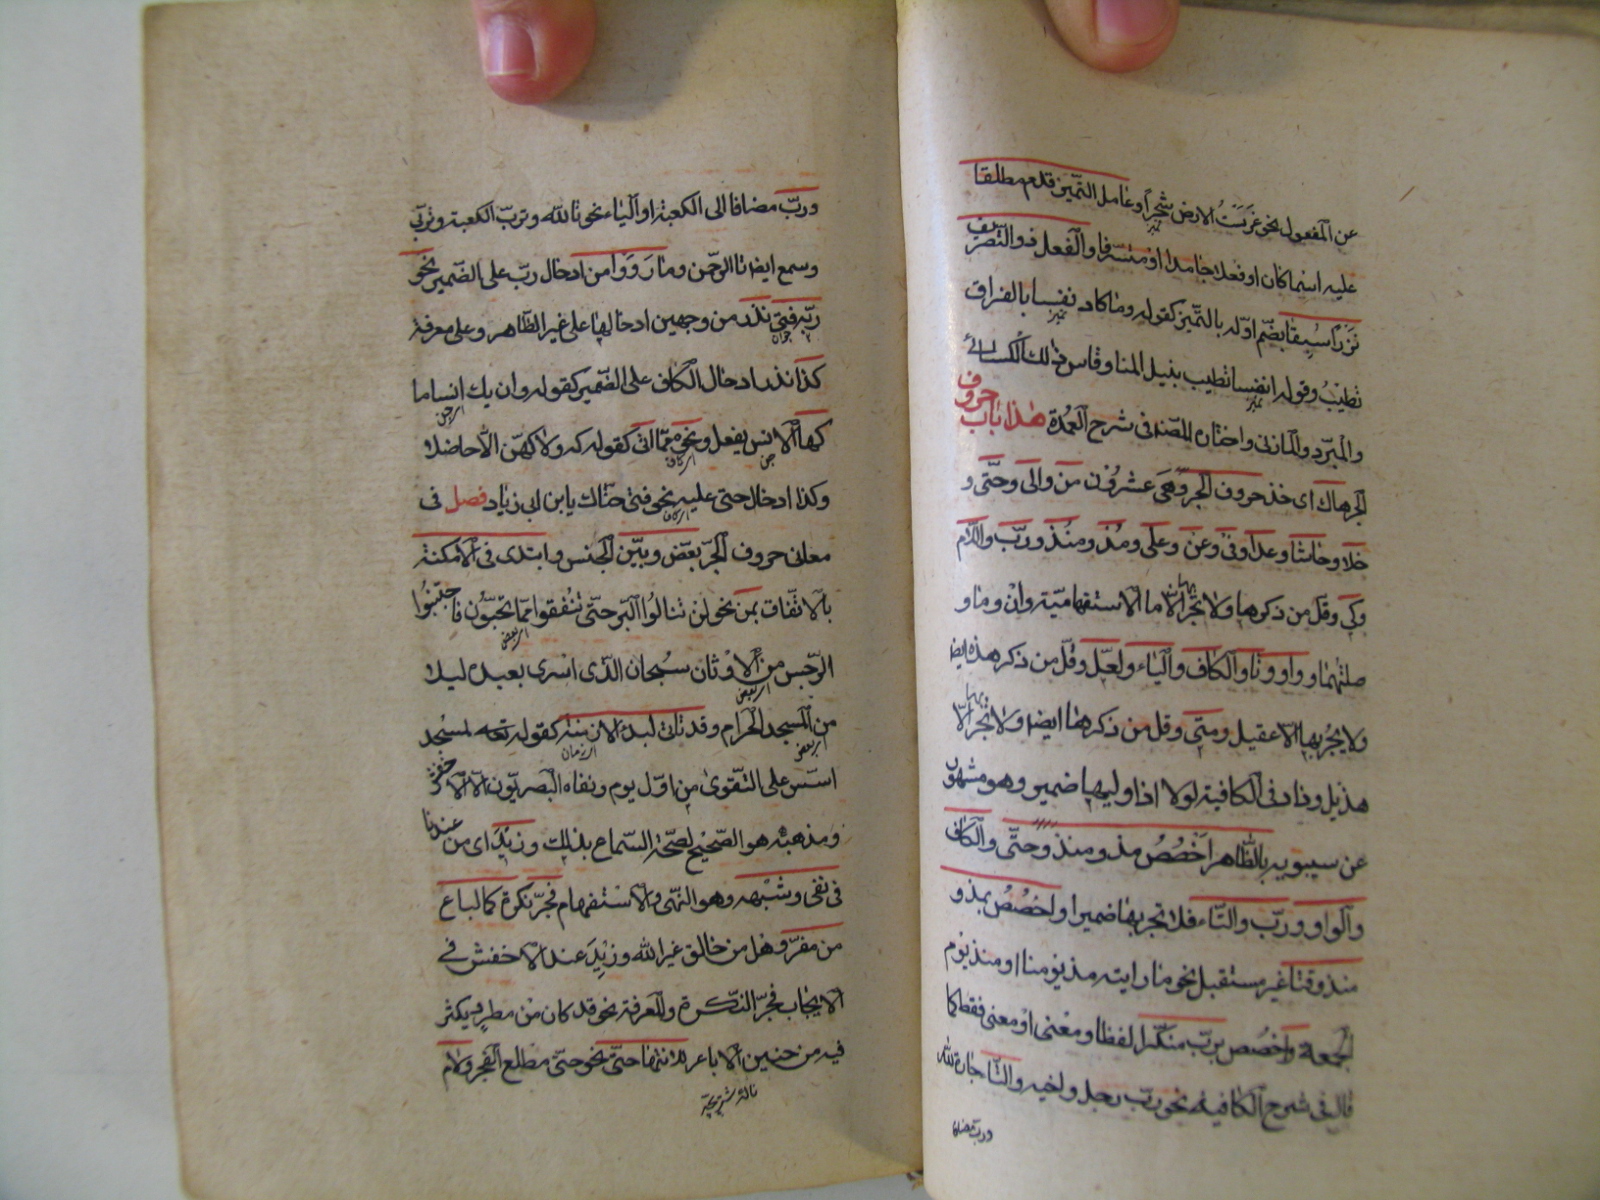 عن المفعول نحو غرست الارض شجرا وعامل التمييز قدم مطلقا
عليه اسما كان او فعلا جامدا او متصرفا والفعل ذو التصريف
نزرا سبقا بضم اوله بالتمييز كقوله وما كاد نفسا بالفراق
تطيب وقوله انفسا تطيب بنيل المنا وقاس ذلك الكسائي
والمبرد والمازني واختاره المصنف في شرح العمدة هذا باب حروف
الجر هاك اى خذ حروف الجر وهى عشرون من والى وحتى و
خلا وحاشا وعدا وفى وعن وعلى ومذ ومنذ ورب واللام
وكي وقل من ذكرها ولا يجر بها الا ما الاستفهامية وان وما و
صلتهما واو وتا والكاف والباء ولعل وقل من ذكر هذه ايضا
ولا يجر بها الا عقيل ومتى وقل من ذكرها ايضا ولا تجر بها الا
هذيل وزاد فى الكافية لولا اذا وليها ضمير وهو مشهور
عن سيبويه بالظاهر اخصص مذ ومنذ وحتى والكاف
والواو ورب والتاء فلا تجر بها ضميرا واخصص بمذ و
منذ وقتا غير مستقبل نحو ما رايته مذ يومنا او منذ يوم
الجمعة واخصص برب منكرا لفظا ومعنى او معنى فقط كما
قال فى شرح الكافية نحو رب رجل واخيه والتا جارة لله
ورب مضافا
ورب مضافا الى الكعبة او الياء نحو تالله وترب الكعبة وتربى
وسمع ايضا تالرحمن وما رووا من ادخال رب على الضمير نحو
ربه فتى نذر من وجهين ادخالها على غير الظاهر وعلى معرفة
كذا نذر ادخال الكاف على الضمير كقوله وان يك انسا ما
كها الانس يفعل ونحوه مما اتى كقوله كه ولا كهن الا حاظلا
وكذا ادخال حتى عليه نحو فتى حتاك يابن ابى زياد فصل فى
معانى حروف الجر بعض وبين الجنس وابتدى فى الامكنة
بالاتفاق بمن نحو لن تنالوا البر حتى تنفقوا مما تحبون فاجتنبوا
الرجس من الاوثان سبحان الذى اسرى بعبده ليلا
من المسجد الحرام وقد تاتى لبدء الازمنة كقوله تعه لمسجد
اسس على التقوى من اول يوم ونفاه البصريون الا الاخفش
ومذهبه هو الصحيح لصحة السماع بذلك وزيد اى من عندنا
فى نفى وشبهه وهو النهى والاستفهام فجر نكرة كما لباغ
من مفر وهل من خالق غير الله وزيد عند الاخفش فى
الايجاب فجر النكرة والمعرفة نحو قد كان من مطر ويكثر
فيه من حنين الاباعر للانتها حتى نحو حتى مطلع الفجر ولام